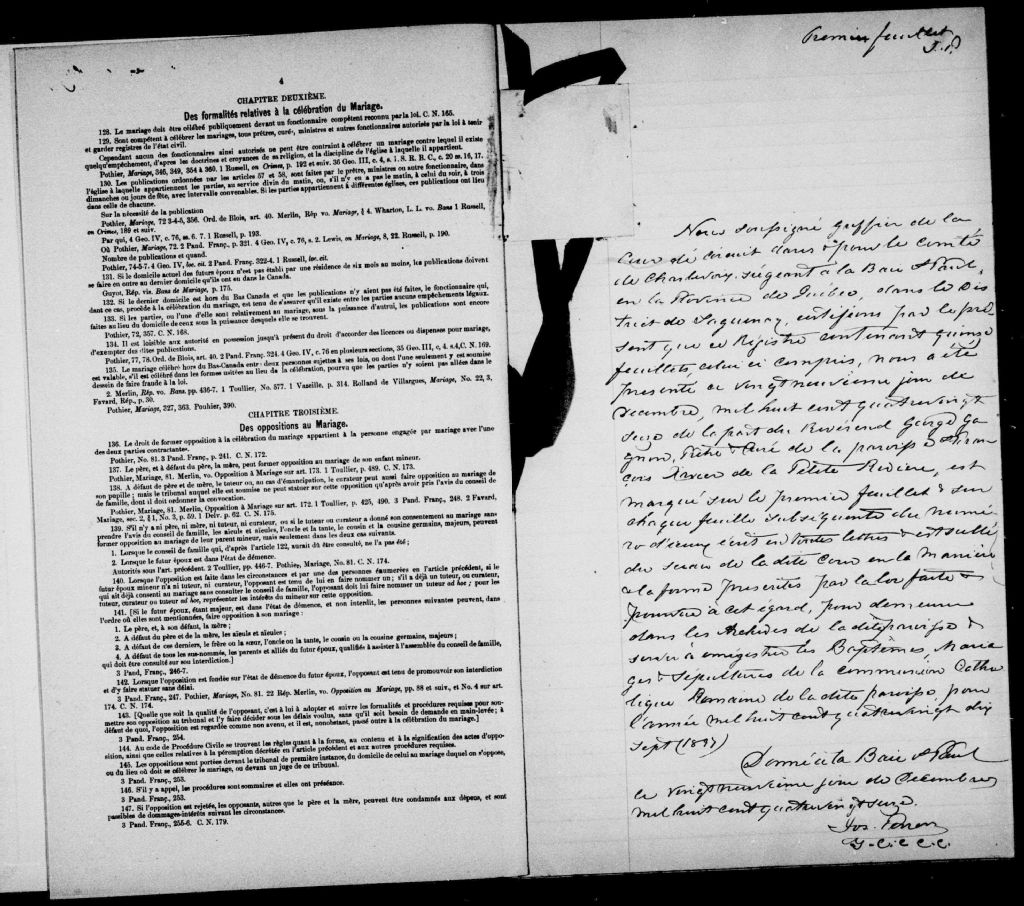 4
CHAPITRE DEUXIÈME.
Des formalités relatives à la célébration du Mariage.
128. Le mariage doit être célébré publiquement devant un fonctionnaire compétent reconnu par la loi. C. N. 165.
129. Sont compétents à célébrer les mariages, tous prêtres, curés, ministres et autres fonctionnaires autorisés par la loi à tenir
et garder registres de l'état civil.
Cependant aucun des fonctionnaires ainsi autorisés ne peut être contraint à célébrer un mariage contre lequel il existe
quelqu'empêchement, d'après les doctrines et croyances de sa religion, et la discipline de l'église à laquelle il appartient.
Pothier, Mariage, 346, 349, 354 à 360. 1 Russell, on Crimes, p. 192 et suiv. 36 Geo. III, c. 4, s. 1. S. R. B. C., c. 20 ss. 16, 17.
130. Les publications ordonnées par les articles 57 et 58, sont faites par le prêtre, ministres ou autre fonctionnaire, dans
l'église à laquelle appartiennent les parties, au service divin du matin, ou, s'il n'y en a pas le matin, à celui du soir, à trois
dimanches ou jours de fête, avec intervalle convenables. Si les parties appartiennent à différentes églises, ces publications ont lieu
dans celle de chacune.
Sur la nécessité de la publication
Pothier, Mariage, 72 3-4-5, 356. Ord. de Blois, art. 40. Merlin, Rép vo. Mariage, § 4. Wharton, L. L. vo. Bans 1 Russell,
on Crimes, 189 et suiv.
Par qui, 4 Geo. IV, c. 76, ss. 6. 7. 1 Russell, p. 193.
Où Pothier, Mariage, 72. 2 Pand. Franç., p. 321. 4 Geo. IV, c. 76, s. 2. Lewis, on Mariage, 8, 22. Russell, p. 190.
Nombre de publications et quand.
Pothier, 74-5-7. 4 Geo. IV, loc. cit. 2 Pand. Franç. 322-4. 1 Russell, loc. cit.
131. Si le domicile actuel des futurs époux n'est pas établi par une résidence de six mois au moins, les publications doivent
se faire en outre au dernier domicile qu'ils ont eu dans le Canada.
Guyot, Rép. vis. Bans de Mariage, p. 175.
132. Si le dernier domicile est hors du Bas Canada et que les publications n'y aient pas été faites, le fonctionnaire qui,
dans ce cas, procède à la célébration du mariage, est tenu de s'assurer qu'il existe entre les parties aucuns empêchements légaux.
133. Si les parties, ou l'une d'elle sont relativement au mariage, sous la puissance d'autrui, les publications sont encore
faites au lieu du domicile de ceux sous la puissance desquels elle se trouvent.
Pothier, 72, 357. C. N. 168.
134. Il est loisible aux autorité en possession jusqu'à présent du droit d'accorder des licences ou dispenses pour mariage,
d'exempter des dites publications.
Pothier, 77, 78. Ord. de Blois, art. 40. 2 Pand Franç. 324. 4 Geo. IV, c. 76 en plusieurs sections, 35 Geo. III, c, 4. s.4,C. N. 169.
135. Le mariage célébré hors du Bas-Canada entre deux personnes sujettes à ses lois, ou dont l'une seulement y est soumise
est valable, s'il est célébré dans les formes usitées au lieu de la célébration, pourvu que les parties n'y soient pas allées dans le
dessein de faire fraude à la loi.
2. Merlin, Rép. vo. Bans. pp. 436-7. 1 Toullier, No. 577. 1 Vazeille, p. 314. Rolland de Villargues, Mariage, No. 22, 3,
Favard, Rép., p. 30.
Pothier, Mariage, 327, 363. Pouhier, 390.
CHAPITRE TROISIÈME.
Des oppositions au Mariage.
136. Le droit de former opposition à la célébration du mariage appartient à la personne engagée par mariage avec l'une
des deux parties contractantes.
Pothier, No. 81. 3 Pand. Franç., p. 241. C. N. 172.
137. Le père, et à défaut du père, la mère, peut former opposition au mariage de son enfant mineur.
Pothier, Mariage, 81. Merlin, vo. Opposition à Mariage sur art. 173. 1 Toullier, p. 489. C. N. 173.
138. A défaut de père et de mère, le tuteur ou, au cas d'émancipation, le curateur peut aussi faire opposition au mariage de
son pupille; mais le tribunal auquel elle est soumise ne peut statuer sur cette opposition qu'après avoir pris l'avis du conseil de
famille, dont il doit ordonner la convocation.
Pothier, Mariage, 81. Merlin, Opposition à Mariage sur art. 172. 1 Toullier, p. 425, 490. 3 Pand. Franç., 248. 2 Favard,
Mariage, sec. 2, § 1, No. 3, p. 59. 1 Delv. p. 62. C. N. 175.
139. S'il n'y a ni père, ni mère, ni tuteur, ni curateur, ou si le tuteur ou curateur a donné son consentement au mariage sans
prendre l'avis du conseil de famille, les aïeuls et aïeules, l'oncle et la tante, le cousin et la cousine germains, majeurs, peuvent
former opposition au mariage de leur parent mineur, mais seulement dans les deux cas suivants.
1. Lorsque le conseil de famille qui, d'après l'article 122, aurait dû être consulté, ne l'a pas été;
2. Lorsque le futur époux est dans l'état de démence.
Autorités sous l'art. précédent. 2 Toullier, pp. 446-7. Pothier, Mariage, No. 81. C. N. 174.
140. Lorsque l'opposition est faite dans les circonstances et par une des personnes énumerées en l'article précédent, si le
futur époux mineur n'a ni tuteur, ni curateur, l'opposant est tenu de lui en faire nommer un; s'il a déjà un tuteur, ou curateur,
qui ait déjà consenti au mariage sans consulter le conseil de famille, l'opposant doit lui faire nommer un tuteur ad hoc; pour les
tuteur, curateur ou tuteur ad hoc, représenter les intérêts du mineur sur cette opposition.
141. [Si le futur époux, étant majeur, est dans l'état de démence, et non interdit, les personnes suivantes peuvent, dans
l'ordre où elles sont mentionnées, faire opposition à son mariage:
1. Le père, et, à son défaut, la mère;
2. A défaut du père et de la mère, les aïeuls et aïeules;
3. A défaut de ces derniers, le frère ou la sœur, l'oncle ou la tante, le cousin ou la cousine germains, majeurs;
4. A défaut de tous les sus-nommés, les parents et alliés du futur époux, qualifiés à assister à l'assemblée du conseil de famille,
qui doit être consulté sur son interdiction.]
3 Pand. Franç., 246-7.
142. Lorsque l'opposition est fondée sur l'état de démence du futur époux, l'opposant est tenu de promouvoir son interdiction
et d'y faire statuer sans délai.
3 Pand. Franç., 247. Pothier, Mariage, No. 81. 22 Rép. Merlin, vo. Opposition au Mariage, pp. 88 et suiv., et No. 4 sur art.
174. C. N. 174.
143. [Quelque soit la qualité de l'opposant, c'est à lui à adopter et suivre les formalités et procédures requises pour sou-
mettre son opposition au tribunal et l'y faire décider sous les délais voulus, sans qu'il soit besoin de demande en main-levée; à
défaut de quoi, l'opposition est regardée comme non avenu, et il est, nonobstant, passé outre à la célébration du mariage.]
3 Pand. Franç., 254.
144. Au code de Procédure Civile se trouvent les règles quant à la forme, au contenu et à la signification des actes d'oppo-
sition, ainsi que celles relatives à la péremption décrétée en l'article précédent et aux autres procédures requises.
145. Les oppositions sont portées devant le tribunal de première instance, du domicile de celui au mariage duquel on s'oppose,
ou du lieu où doit se célébrer le mariage, ou devant un juge de ce tribunal.
3 Pand. Franç., 253.
146. S'il y a appel, les procédures sont sommaires et elles ont préséance.
3 Pand. Franç., 253.
147. Si l'opposition est rejetée, les opposants, autres que le père et la mère, peuvent être condamnés aux dépens, et sont
passibles de dommages-intérêts suivant les circonstances.
3 Pand. Franç., 255-6. C. N. 179.
Premier feuillet
J. P.
Nous soussigné greffier de la
Cour de circuit dans & pour le comté
de Charlevoix, siégeant à la Baie St Paul,
en la Province de Québec, dans le Dis
trict de Saguenay, certifions par le pré
sent que ce Registre contenant quinze
feuillets, celui ci compris, nous a été
présenté ce vingt neuvième jour de
décembre, mil huit cent quatrevingt
seize de la part du Révérend George Ga
gnon, Prêtre & Curé de la paroisse St Fran
çois Xavier de la Petite Rivière, est
marqué sur le premier feuillet & sur
chaque feuille subséquente du numé
ro d'icelui écrit en toutes lettres & est scellé
du sceau de la dite Cour en la manière
& la forme prescrites par la loi faite &
pourvue à cet égard, pour demeurer
dans les Archives de la dite paroisse &
servir à enregistrer les Baptêmes, Maria
ges & Sépultures de la communion Catho
lique Romaine de la dite paroisse, pour
l'année mil huit cent quatrevingt dix
sept (1897)
Donné à la Baie St Paul
ce vingt neuvième jour de Décembre
mil huit cent quatrevingt seize.
Jos. Perron
G. C. C. C. C.